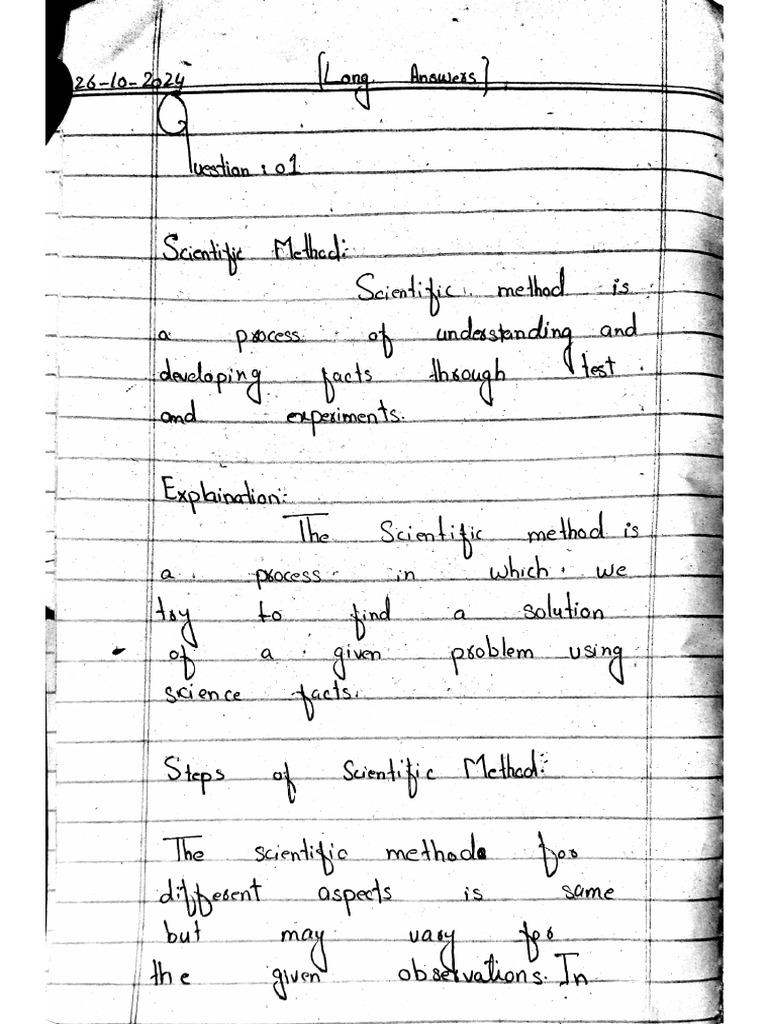 26-10-2024 [Long Answers]
Question : 01
Scientific Method:
Scientific method is
a process of understanding and
developing facts through test
and experiments.
Explaination:
The Scientific method is
a process in which we
try to find a solution
of a given problem using
science facts.
Steps of Scientific Method:
The scientific method for
different aspects is same
but may vary for
the given observations. In